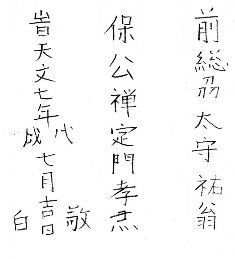 前総刕太守祐翁
保公禅定門孝杰
旹天文七年戊戌七月吉日敬白